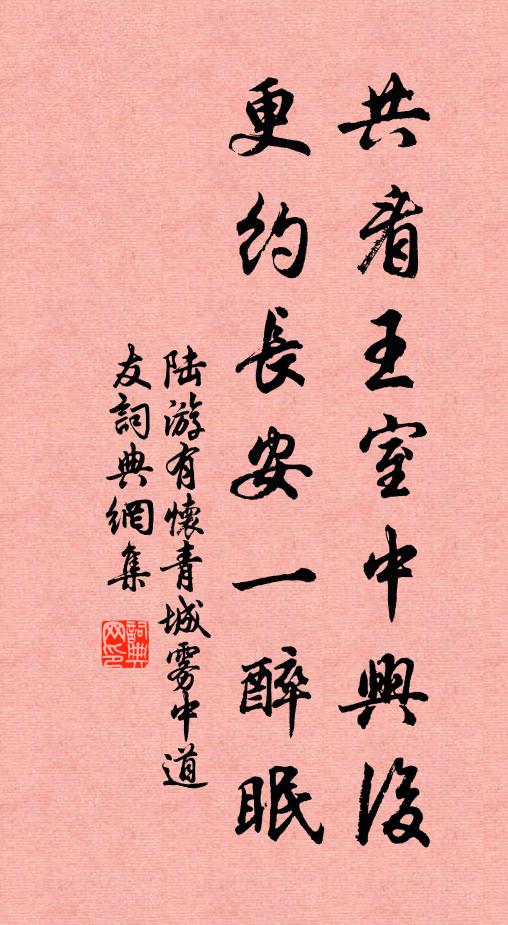 共看王室中興後
更約長安一醉眠
陆游有懷青城雾中道
友詞典網集
詞典网印